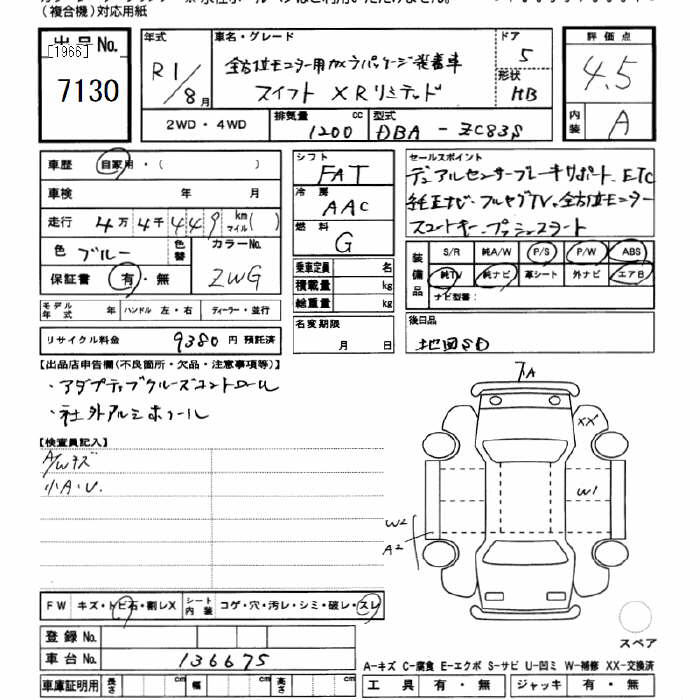 （複合機）対応用紙
出品No.
[1966]
7130
年式
R1/8月
車名・グレード
全方位モニター用カメラパッケージ装着車
スイフト XRリミテッド
ドア
5
形状
HB
評価点
4.5
内装
A
2WD・4WD
排気量
1200 cc
型式
DBA - ZC83S
車歴 自家用・( )
車検 年 月
走行 4万4千449 km マイル( )
色 ブルー
色替
カラーNo.
ZWG
保証書 有・無
モデル年式 年 ハンドル 左・右 ディーラー・並行
リサイクル料金 9380円 預託済
シフト
FAT
冷房
AAC
燃料
G
乗車定員 名
積載量 kg
総重量 kg
名変期限
月 日
セールスポイント
デュアルセンサーブレーキサポート、ETC
純正ナビ・フルセグTV、全方位モニター
スマートキー、プッシュスタート
装備品
S/R 純A/W P/S P/W ABS
純TV 純ナビ 革シート 外ナビ エアB
ナビ型番：
後日品
地図SD
【出品店申告欄(不良箇所・欠品・注意事項等)】
・アダプティブクルーズコントロール
・社外アルミホイール
【検査員記入】
A/Wキズ
小A・U.
A
XX
W1
W2
A2
FW キズ・トビ石・割レX
シート内装 コゲ・穴・汚レ・シミ・破レ・スレ
登録No.
車台No. 136675
車庫証明用 長さ cm 幅 cm 高さ cm
スペア
A-キズ C-腐食 E-エクボ S-サビ U-凹ミ W-補修 XX-交換済
工具 有・無 ジャッキ 有・無